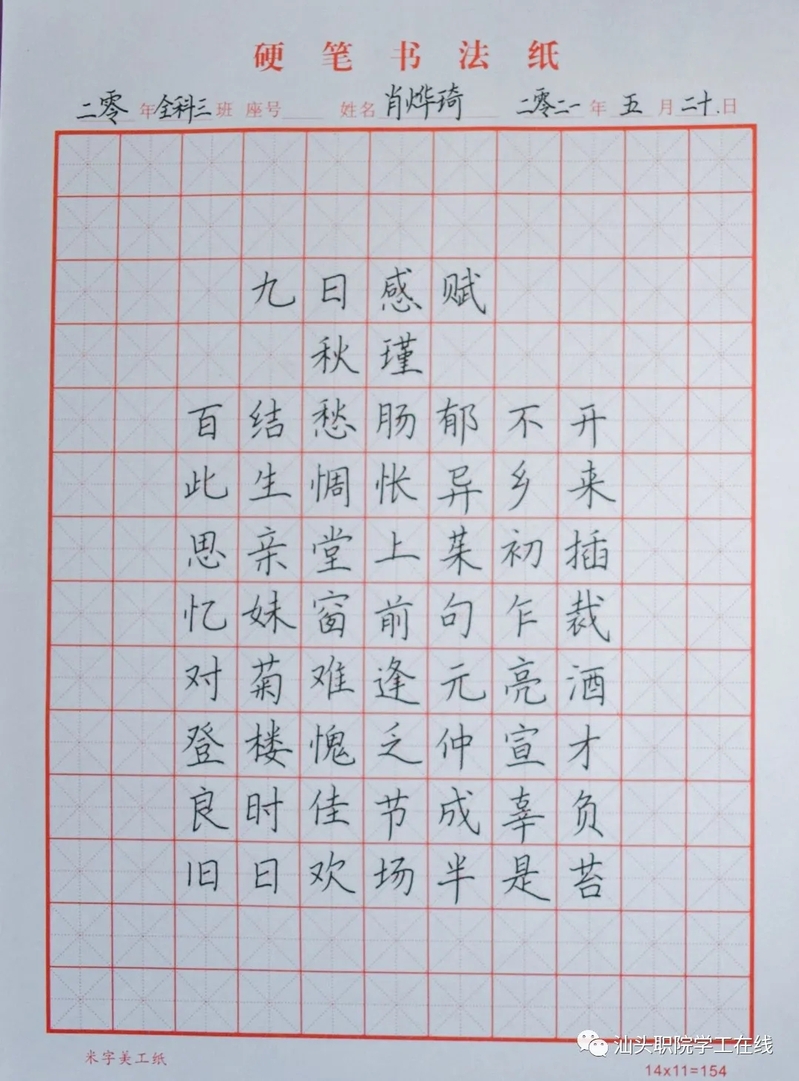 硬笔书法纸
二零年全科三班 座号 姓名肖烨琦 二零二一年五月二十.日
九日感赋
秋瑾
百结愁肠郁不开
此生惆怅异乡来
思亲堂上茱初插
忆妹窗前句乍裁
对菊难逢元亮酒
登楼愧乏仲宣才
良时佳节成辜负
旧日欢场半是苔
米字美工纸
汕头职院学工在线
14x11=154